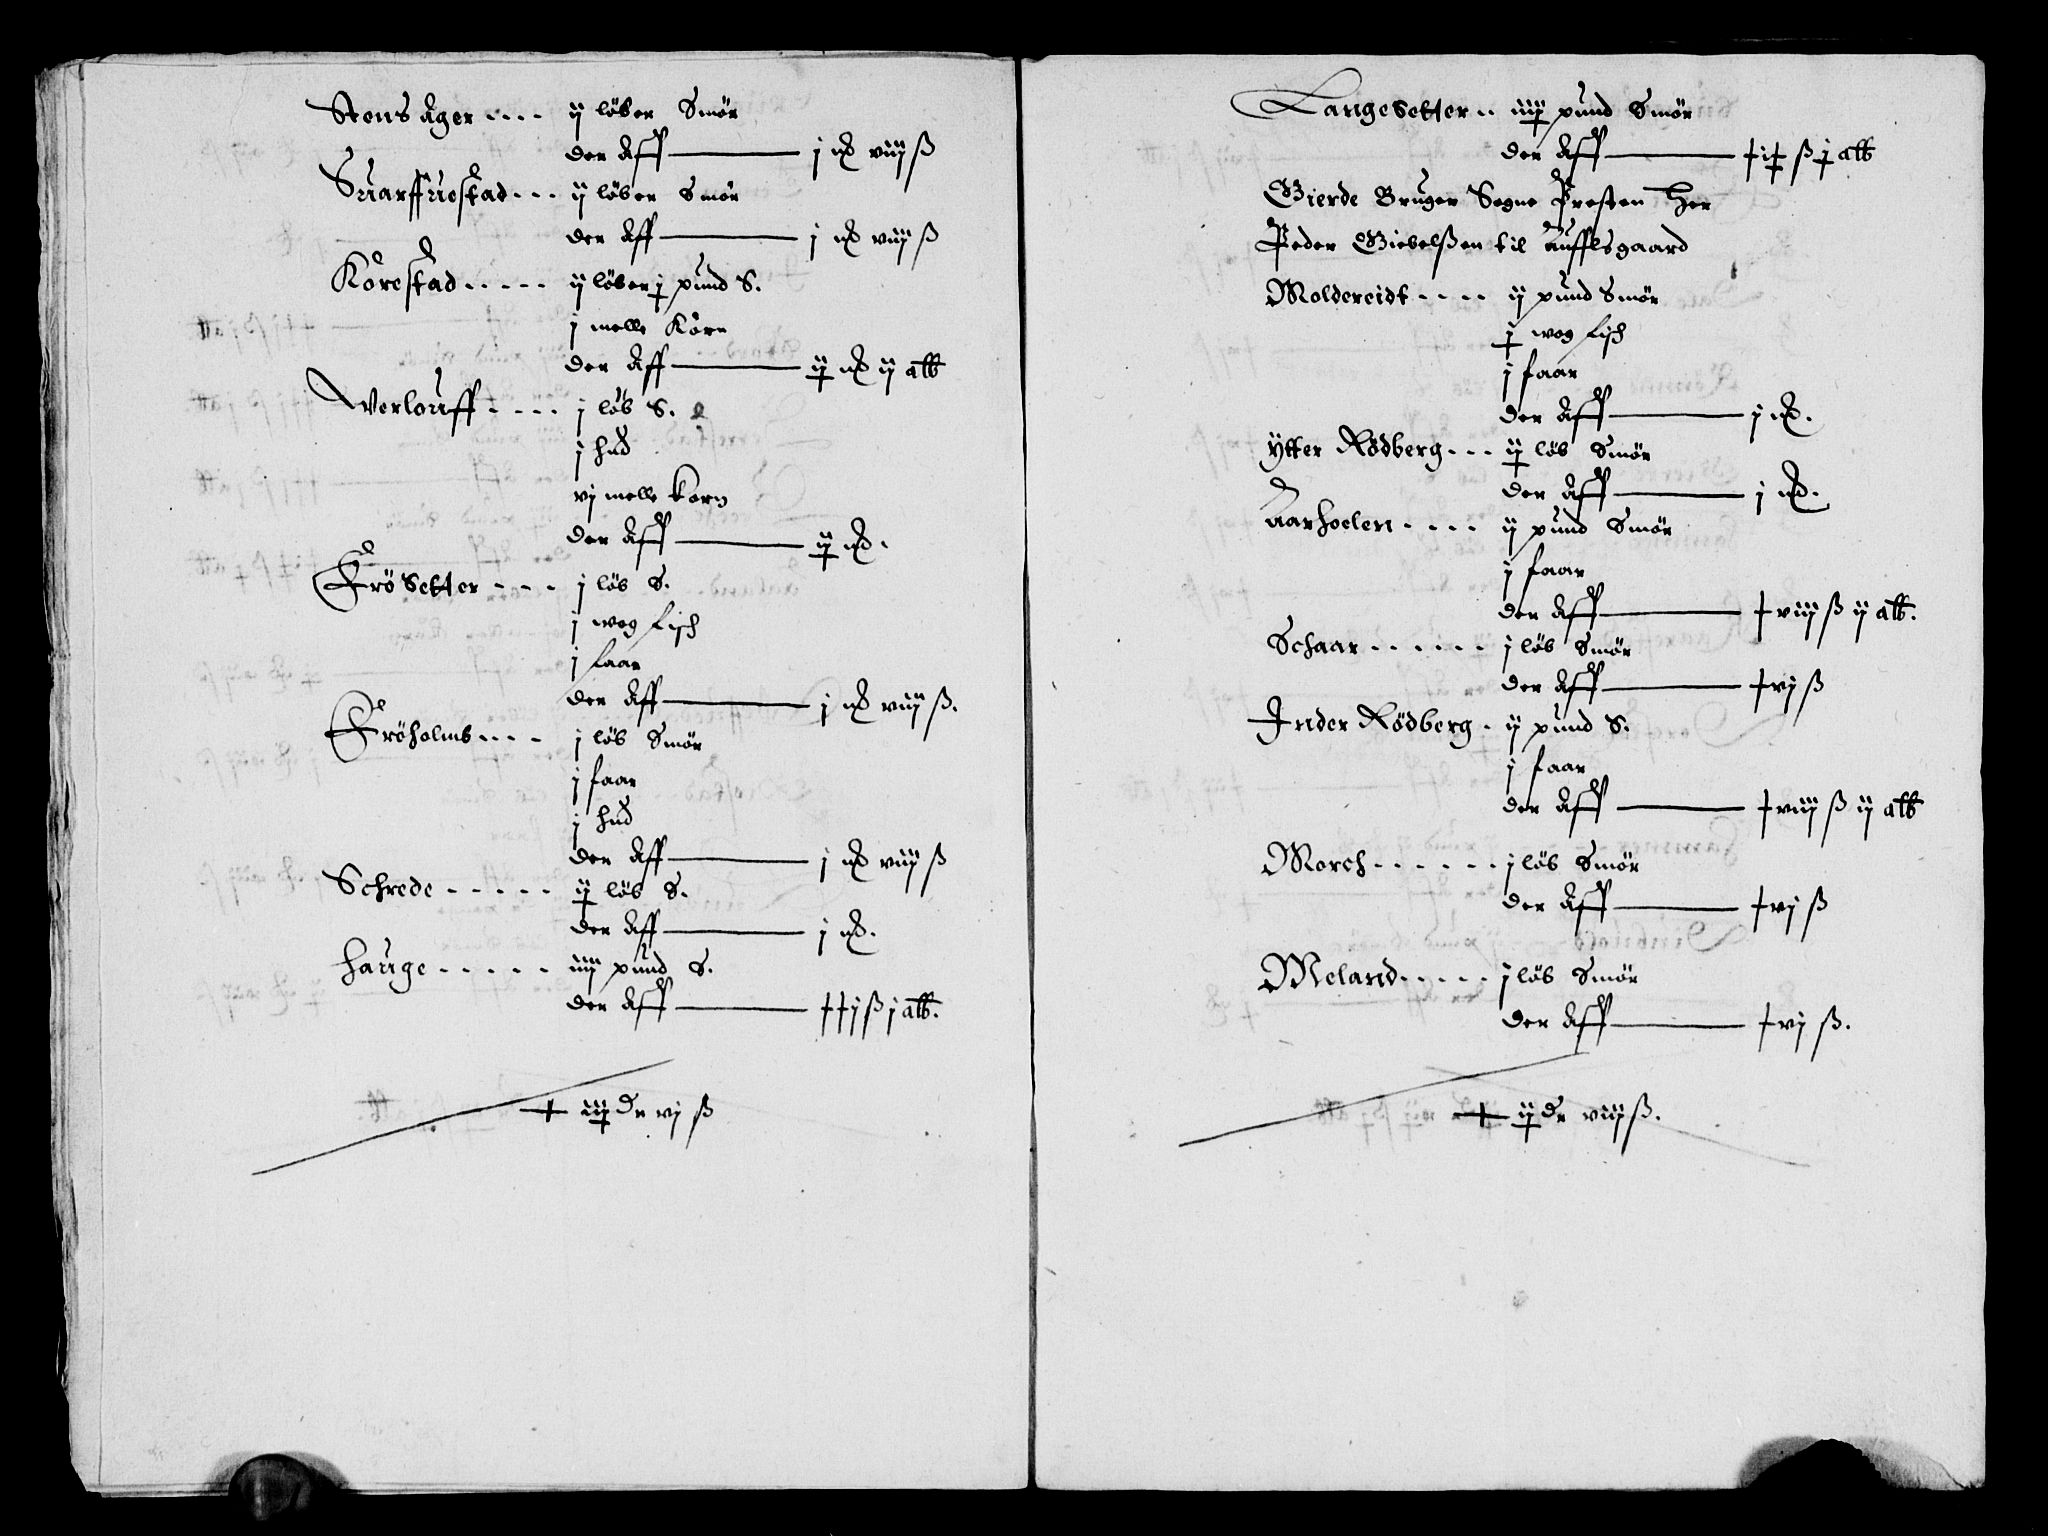 Stens Ager .... ij löber Smör
der Aff ——— j nd viij ß
Suarffuestad ... ij löber Smör
der Aff ——— j nd viij ß
Körestad ..... ij löber j pund S.
j melle Körn
der Aff ——— ij nd ij alb
Werlouff .... j löb S.
j hud
vj melle korn
der Aff ——— ij nd.
Frösetter ... j löb S.
j wog fisch
j faar
der Aff ——— j nd viij ß.
Fröholmb ... j löb Smör
j faar
j hud
der Aff ——— j nd viij ß
Schrede ..... ij löb S.
der Aff ——— j nd.
Hauge ..... iiij pund S.
der Aff ——— ++ij ß j alb.
+ iij dr vj ß
Langesetter .. iiij pund Smör
der Aff ——— +i+ ß j alb
Gierde Bruger Sogne Presten Her
Peder Gievelßen til Aufflsgaard
Moldereidt .... ij pund Smör
j wog fisch
j faar
der Aff ——— j nd.
Ytter Rödberg ... ij löb Smör
der Aff ——— j nd.
Aarhoelen .... ij pund Smör
j faar
der Aff ——— +viij ß ij alb.
Schaar ...... j löb Smör
der Aff ——— +vj ß
Inder Rödberg . ij pund S.
j faar
der Aff ——— +viij ß ij alb
Morch ...... j löb Smör
der Aff ——— +vj ß
Meland ..... j löb Smör
der Aff ——— +vj ß.
+ ij dr viij ß.